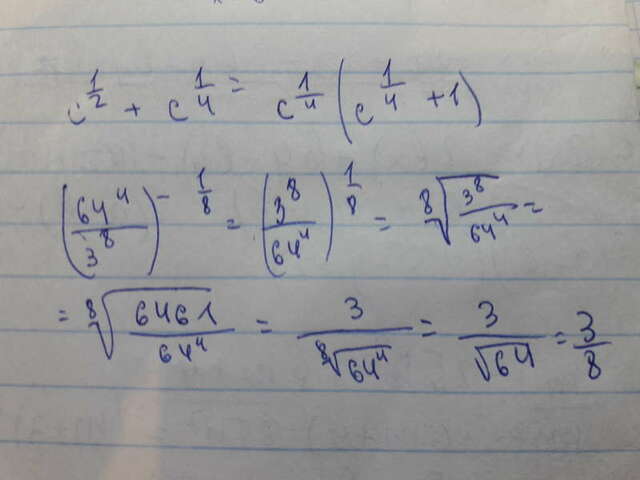 c^{1/2} + c^{1/4} = c^{1/4} (c^{1/4} + 1)
(64^4/3^8)^{-1/8} = (3^8/64^4)^{1/8} = ⁸√(3^8/64^4) =
= ⁸√(6461/64^4) = 3/⁸√(64^4) = 3/√64 = 3/8